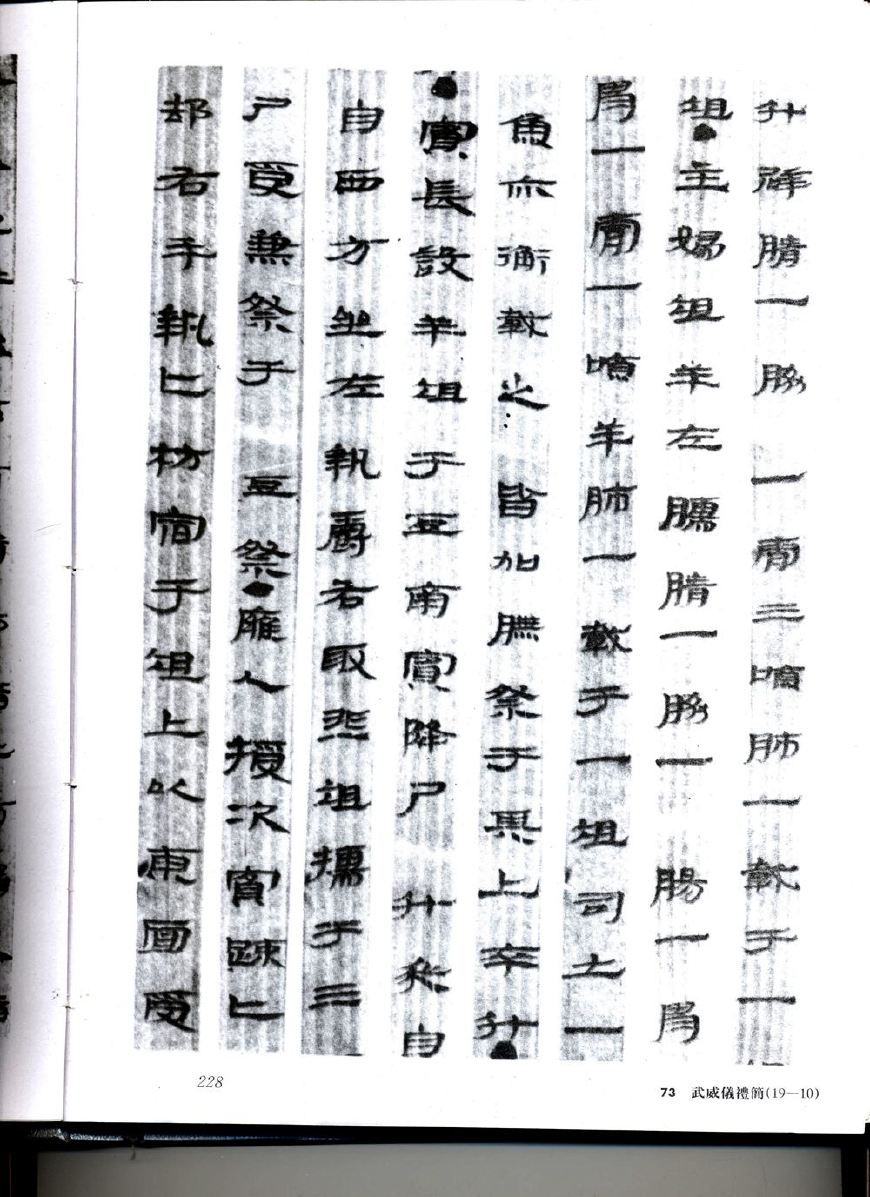 升 腈一脅一膚三嚌肺一載于一
俎●主婦俎羊左臑腈一脅一腸一胃
胃一膚一嚌羊肺一載于一俎司士一
魚亦衡載之皆加膴祭于其上卒升
●賓長設羊俎于豆南賓降尸升筵自
自西方坐左執爵右取韭俎擩于三
尸受兼祭于豆祭●雍人授次賓疏匕
却右手執匕枋宿于俎上以東面受
228
73 武威儀禮簡(19—10)